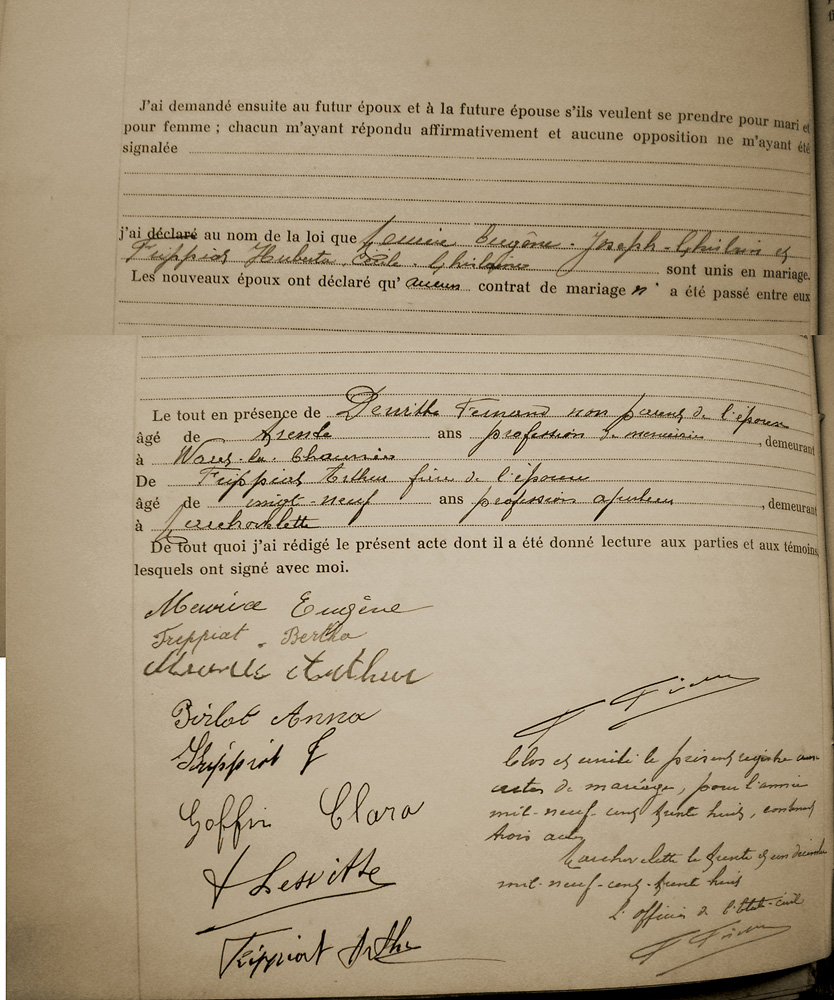 J'ai demandé ensuite au futur époux et à la future épouse s'ils veulent se prendre pour mari et
pour femme ; chacun m'ayant répondu affirmativement et aucune opposition ne m'ayant été
signalée
j'ai déclaré au nom de la loi que Eugène - Joseph - Ghislain et
Frippiat Huberta Ghislaine sont unis en mariage.
Les nouveaux époux ont déclaré qu' aucun contrat de mariage n' a été passé entre eux
Le tout en présence de Fernand non parent de l'époux
âgé de trente ans profession de menuisier, demeurant
à
De Frippiat Arthur frère de l'épouse
âgé de vingt-neuf ans profession, demeurant
à
De tout quoi j'ai rédigé le présent acte dont il a été donné lecture aux parties et aux témoins,
lesquels ont signé avec moi.
Meurice Eugène
Frippiat - Bertha
Meurice Arthur
Birlot Anna
Frippiat J
Goffin Clara
Frippiat Arthur
Clos et arrêté le présent registre aux
actes de mariage, pour l'année
mil-neuf-cent trente huit, contenant
trois actes
le trente et un décembre
mil-neuf-cent-trente huit
L'officier de l'état-civil